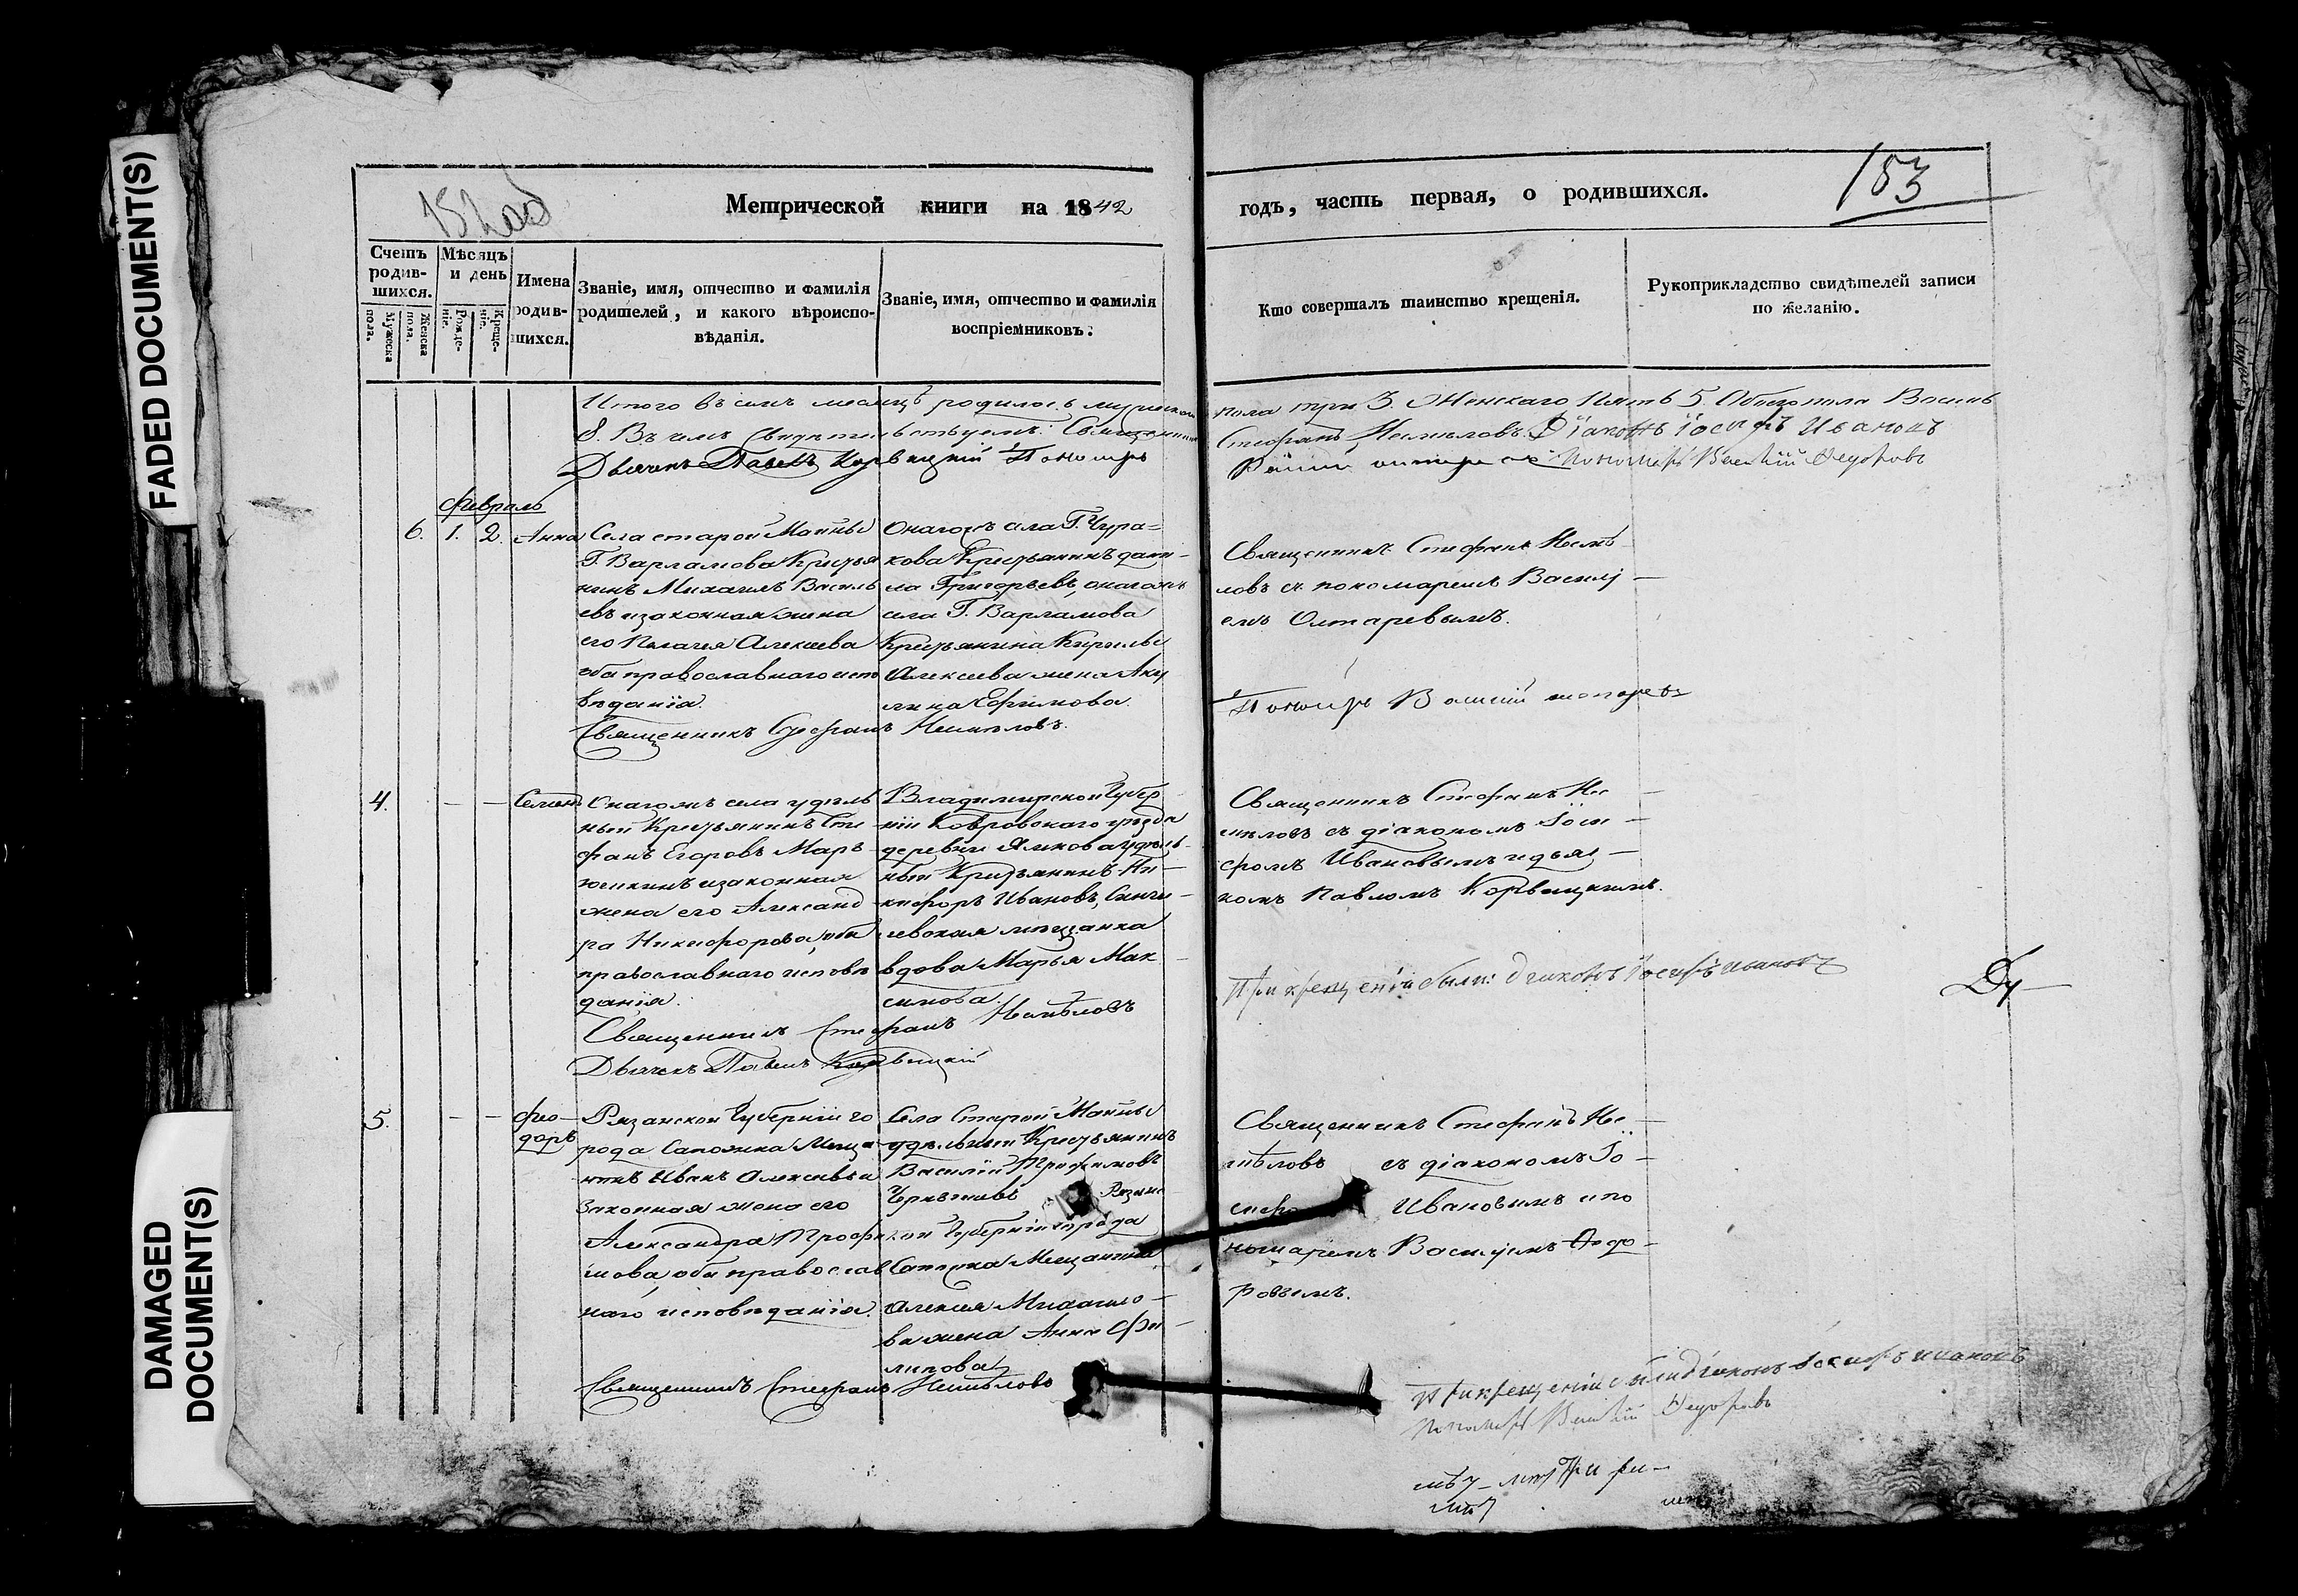 FADED DOCUMENT(S)
DAMAGED
DOCUMENT(S)
Метрической книги на 1842
годъ, часть первая, о родившихся.
183
Счетъ
родив-
шихся.
Мужеска
пола.
Женска
пола.
Мѣсяцъ
и день
Рожде-
ніе.
Креще-
ніе.
Имена
родив-
шихся.
Званіе, имя, отчество и фамилія
родителей, и какого вѣроиспо-
вѣданія.
Званіе, имя, отчество и фамилія
воспріемниковъ.
Кто совершалъ таинство крещенія.
Рукоприкладство свидѣтелей записи
по желанію.
Итого въ семъ месяцѣ родилось мужескаго
8. Въ чемъ свидѣтельствуемъ: Священникъ
Дьячекъ Павелъ Корвицкій Пономарь
пола три 3. Женскаго пять 5. Обоего пола Восемь
Стефанъ Несмѣловъ. Діаконъ Іосифъ Ивановъ
Пономарь Василій Федоровъ
февраль
6. 1. 2. Анна
Села старой Майны
Г. Варламова Кресья
нинъ Михаилъ Василь
евъ изаконная жена
его Пелагея Алексеева
оба православнаго испо
вѣданія.
Священникъ Стефанъ Несмѣловъ.
Онагожъ села Г. Чура=
кова Крестьянинъ дани-
ла Григорьевъ, онагожъ
села Г. Варламова
Крестьянина Кирилы
Алексеева жена Аку
лина Ефимова.
Священникъ Стефанъ Несмѣ-
ловъ съ пономаремъ Василі-
емъ Олтаревымъ.
Пономарь Василій
4. — — Семенъ
Онагожъ села удѣль
ный Крестьянинъ Сте
фанъ Егоровъ Марь-
юшкинъ изаконная
жена его Александ
ра Никифорова, оба
православнаго исповѣ
данія.
Священникъ Стефанъ Несмѣловъ
Дьячекъ Павелъ Корвицкій
Владимирской Губер
ніи Ковровскаго уѣзда
деревни Ямкова удѣль-
ный Крестьянинъ Ни-
кифоръ Ивановъ, Синги-
левская мѣщанка
вдова Марья Мак-
симова.
Священникъ Стефанъ Нес-
мѣловъ съ діакономъ Іоси-
фомъ Ивановымъ идьяч-
комъ Павломъ Корвицкимъ.
При крещеніи были: діаконъ Іосифъ Ивановъ
5. — — Фео-
доръ
Рязанской Губерніи го
рода Сапожка Меща
нинъ Иванъ Алексеевъ и
Законная жена его
Александра Трофи
мова, оба православ
наго исповѣданія.
Священникъ Стефанъ Несмѣловъ
Села Старой Майны
удѣльный Крестьянинъ
Василій Трофимовъ
Рязанс
кой Губерніи города
Сапожка Мещанина
Алексея Михайло-
ва жена Анна Фи-
липова
Священникъ Стефанъ Нес-
мѣловъ съ діакономъ Іо-
сифо Ивановымъ ипо
номаремъ Василіемъ Федо-
ровымъ.
При крещеніи были діаконъ Іосифъ Ивановъ
Пономарь Василій Федоровъ